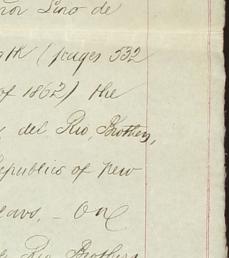 Lino de
(pages 532
of 1862) the
del Rio, Brothers,
Republics of new
- One
Rio Brothers